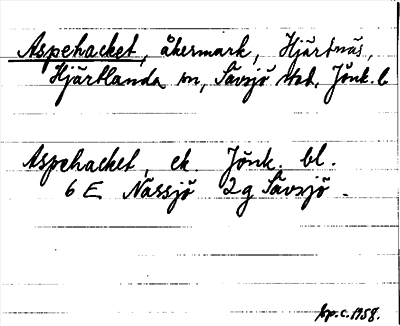 Aspehacket, åkermark, Hjärtnäs,
Hjärtlanda sn, Sävsjö stad, Jönk. l.
Aspehacket, ek. Jönk. bl.
6 E Nässjö 2g Sävsjö.
op.c.1958.